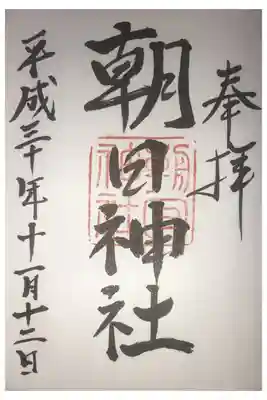 奉拝
朝日神社
朝日神社
平成三十年十一月十二日